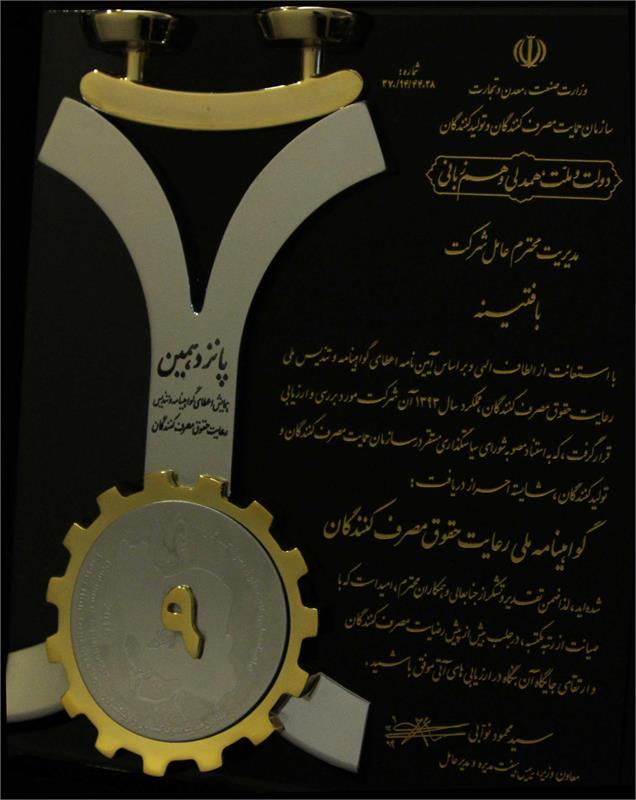 شماره:
۳۷۰/۹۴/۴۴۰۳۸
وزارت صنعت، معدن و تجارت
سازمان حمایت مصرف کنندگان و تولیدکنندگان
دولت و ملت، همدلی و هم زبانی
مدیریت محترم عامل شرکت
بافتینه
با استعانت از الطاف الهی و بر اساس آیین نامه اعطای گواهینامه و تندیس ملی
رعایت حقوق مصرف کنندگان، عملکرد سال ۱۳۹۳ آن شرکت مورد بررسی و ارزیابی
قرار گرفت، که به استناد مصوبه شورای سیاستگذاری مستقر در سازمان حمایت مصرف کنندگان و
تولید کنندگان، شایسته احراز دریافت:
گواهینامه ملی رعایت حقوق مصرف کنندگان
شده اید، لذا ضمن تقدیر و تشکر از جنابعالی و همکاران محترم، امید است که با
صیانت از رتبه مکتسب، در جلب بیش از پیش رضایت مصرف کنندگان
و ارتقای جایگاه آن بنگاه در ارزیابی های آتی موفق باشید.
سید محمود نوابی
معاون وزیر، رییس هیئت مدیره و مدیر عامل
پانزدهمین
همایش اعطای گواهینامه و تندیس
رعایت حقوق مصرف کنندگان